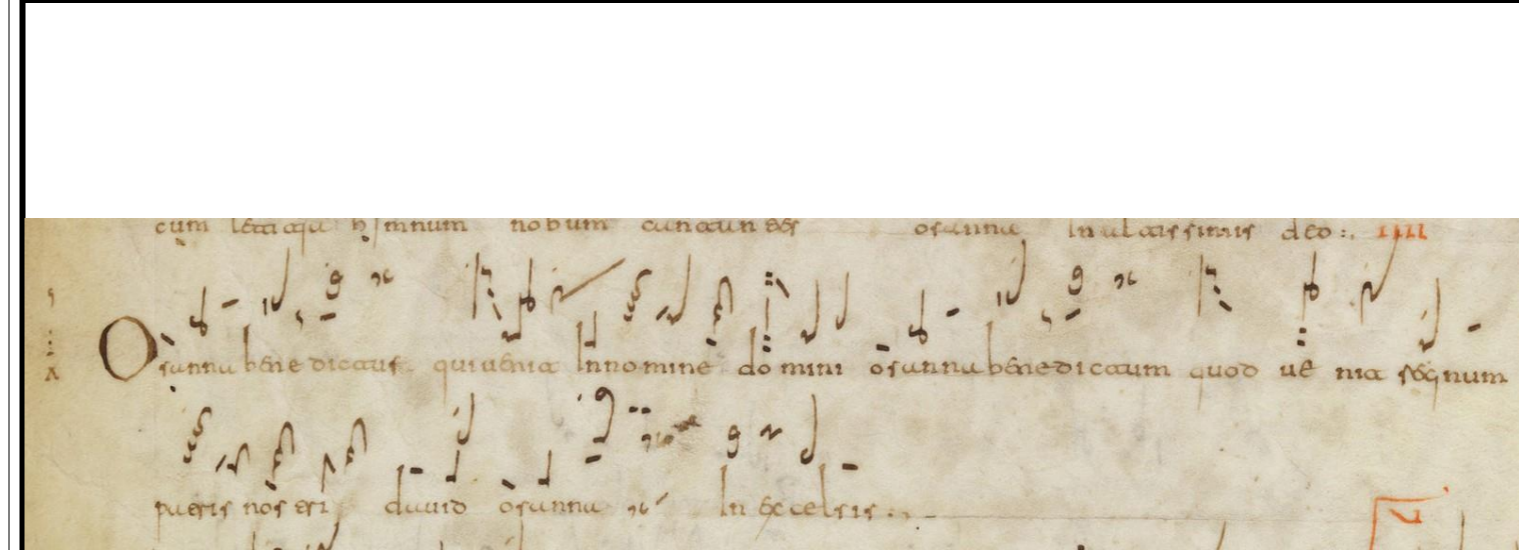 cum letitia hymnum nobum canantes osanna In altissimis deo :. IIII
Osanna benedictus qui uenit In nomine domini osanna benedictum quod uenit regnum
patris nostri dauid osanna In excelsis :.